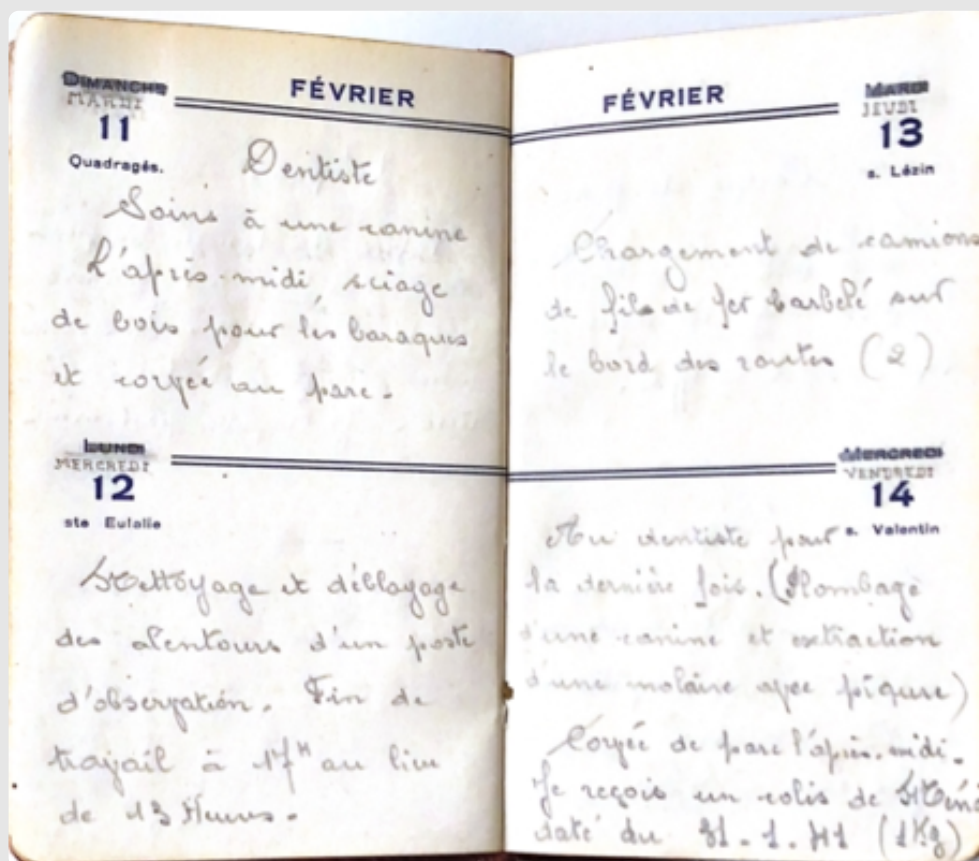 DIMANCHE
MARDI
11
Quadragés.
FÉVRIER
Dentiste
Soins à une canine
L'après-midi, sciage
de bois pour les baraques
et corvée au parc.
LUNDI
MERCREDI
12
ste Eulalie
Nettoyage et déblayage
des alentours d'un poste
d'observation. Fin de
travail à 17H au lieu
de 13 Heures.
FÉVRIER
MARDI
JEUDI
13
s. Lézin
Chargement de camions
de fils de fer barbelé sur
le bord des routes (2)
MERCREDI
VENDREDI
14
s. Valentin
Au dentiste pour
la dernière fois. (Plombage
d'une canine et extraction
d'une molaire avec piqure)
Corvée de parc l'après-midi.
Je reçois un colis de
daté du 31.1.41 (1Kg)